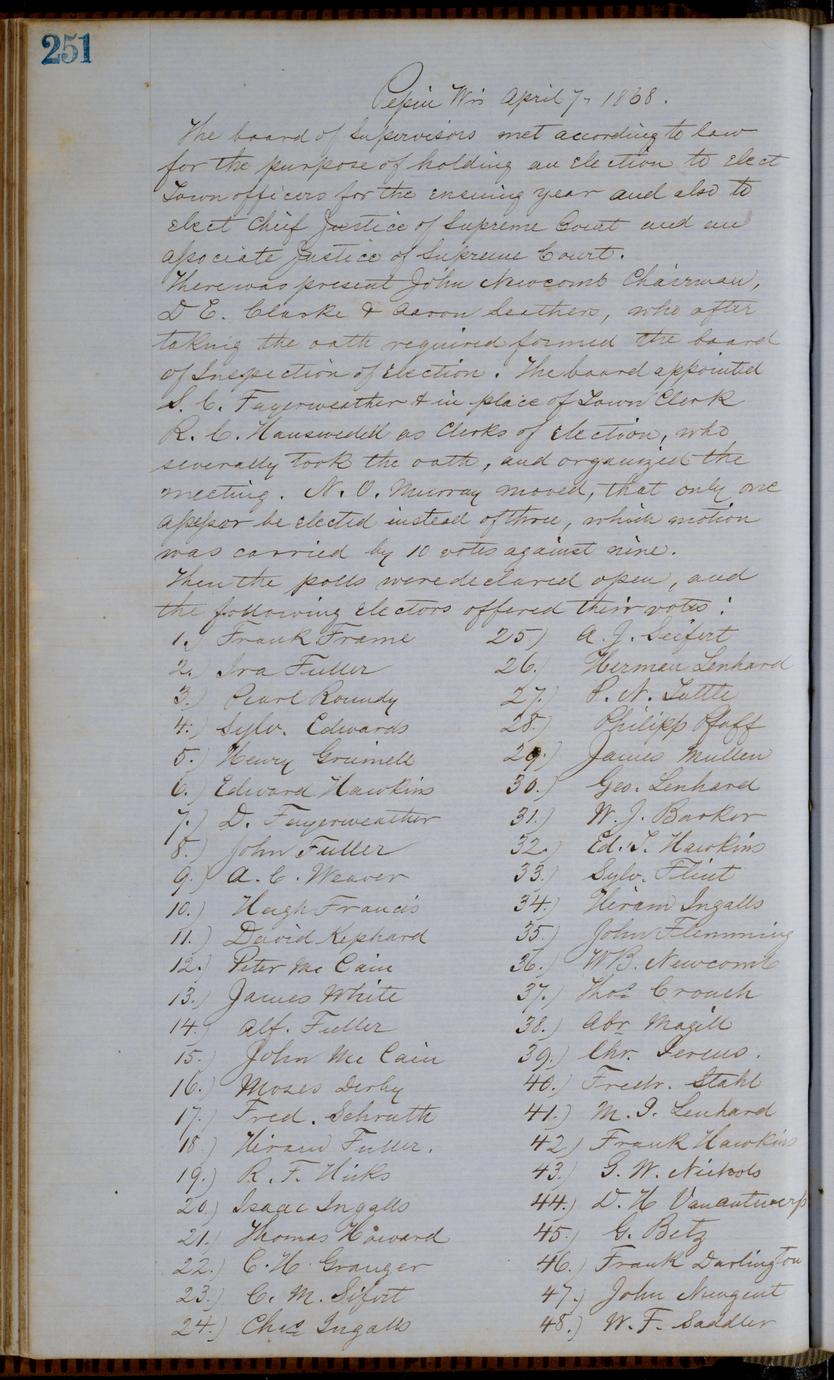 251
Pepin Wis April 7, 1868.
The board of Supervisors met according to law
for the purpose of holding an election to elect
Town officers for the ensuing year and also to
elect Chief Justice of Supreme Court and an
associate Justice of Supreme Court.
There was present John Newcomb Chairman,
D E. Clarke & Aaron Leathers, who after
taking the oath required formed the board
of Inspection of election. The board appointed
S. C. Fayerweather & in place of Town Clerk
R. C. Hauswedell as Clerks of election, who
severally took the oath, and organized the
meeting. N. O. Murray moved, that only one
assessor be elected instead of three, which motion
was carried by 10 votes against nine.
Then the polls were declared open, and
the following electors offered their votes:
1.) Frank Frame
2.) Ira Fuller
3.) Pearl Roundy
4.) Sylv. Edwards
5.) Henry Grinnell
6.) Edward Hawkins
7.) D. Fayerweather
8.) John Fuller
9.) A. C. Weaver
10.) Hugh Francis
11.) David Kephard
12.) Peter Mc Cain
13.) James White
14.) Alf. Fuller
15.) John Mc Cain
16.) Moses Derby
17.) Fred. Schruth
18.) Hiram Fuller.
19.) R. F. Hicks
20.) Isaac Ingalls
21.) Thomas Howard
22.) C. H. Granger
23.) C. M. Sifert
24.) Chas Ingalls
25.) A. J. Seifert
26.) Herman Lenhard
27.) P. N. Tuttle
28.) Philipp Pfaff
29.) James Mullen
30.) Geo. Lenhard
31.) W. J. Barker
32.) Ed. T. Hawkins
33.) Sylv. Flint
34.) Hiram Ingalls
35.) John Flemming
36.) W B. Newcomb
37.) Thos Crouch
38.) Abr. Magill
39.) Chr.
40.) Fredr. Stahl
41.) M. J. Lenhard
42.) Frank Hawkins
43.) G. W. Nichols
44.) D. H Vanantwerp
45.) G. Betz
46.) Frank Darlington
47.) John Nuogent
48.) W. F. Saddler